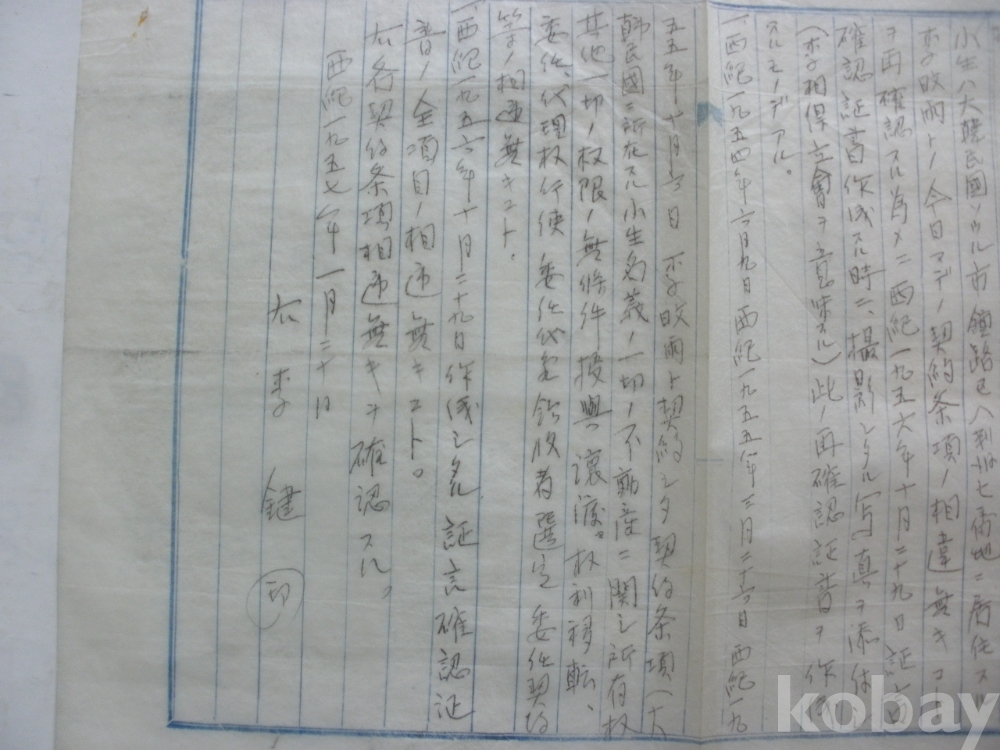 小生ハ大韓民國ソウル市鍾路区八判洞七番地ニ居住スル
李畋雨トノ今日マデノ契約条項ノ相違無キコ
ヲ再確認スル為メニ西紀一九五六年十月二十九日証言
確認証書作成スル時ニ、撮影シタル写真ヲ添付
(李相倬立會ヲ意味スル)此ノ再確認証書ヲ作成
スルモノデアル。
一、西紀一九五四年六月九日 西紀一九五五年三月二十六日 西紀一九
五五年十月六日 李畋雨ト契約シタ契約条項(大
韓民國ニ所在スル小生名義ノ一切ノ不動産ニ関シ所有权
其他一切ノ权限ノ無條件授與、譲渡。权利移転、
委任、代理权行使 委任代定 委任契約
等ノ相違無キコト。
一、西紀一九五六年十月二十九日作成シタル証言確認証
書ノ全項目ノ相違無キコト。
右各契約条項相違無キヲ確認スル。
西紀一九五七年一月二十日
右 李 鍵 印
kobay